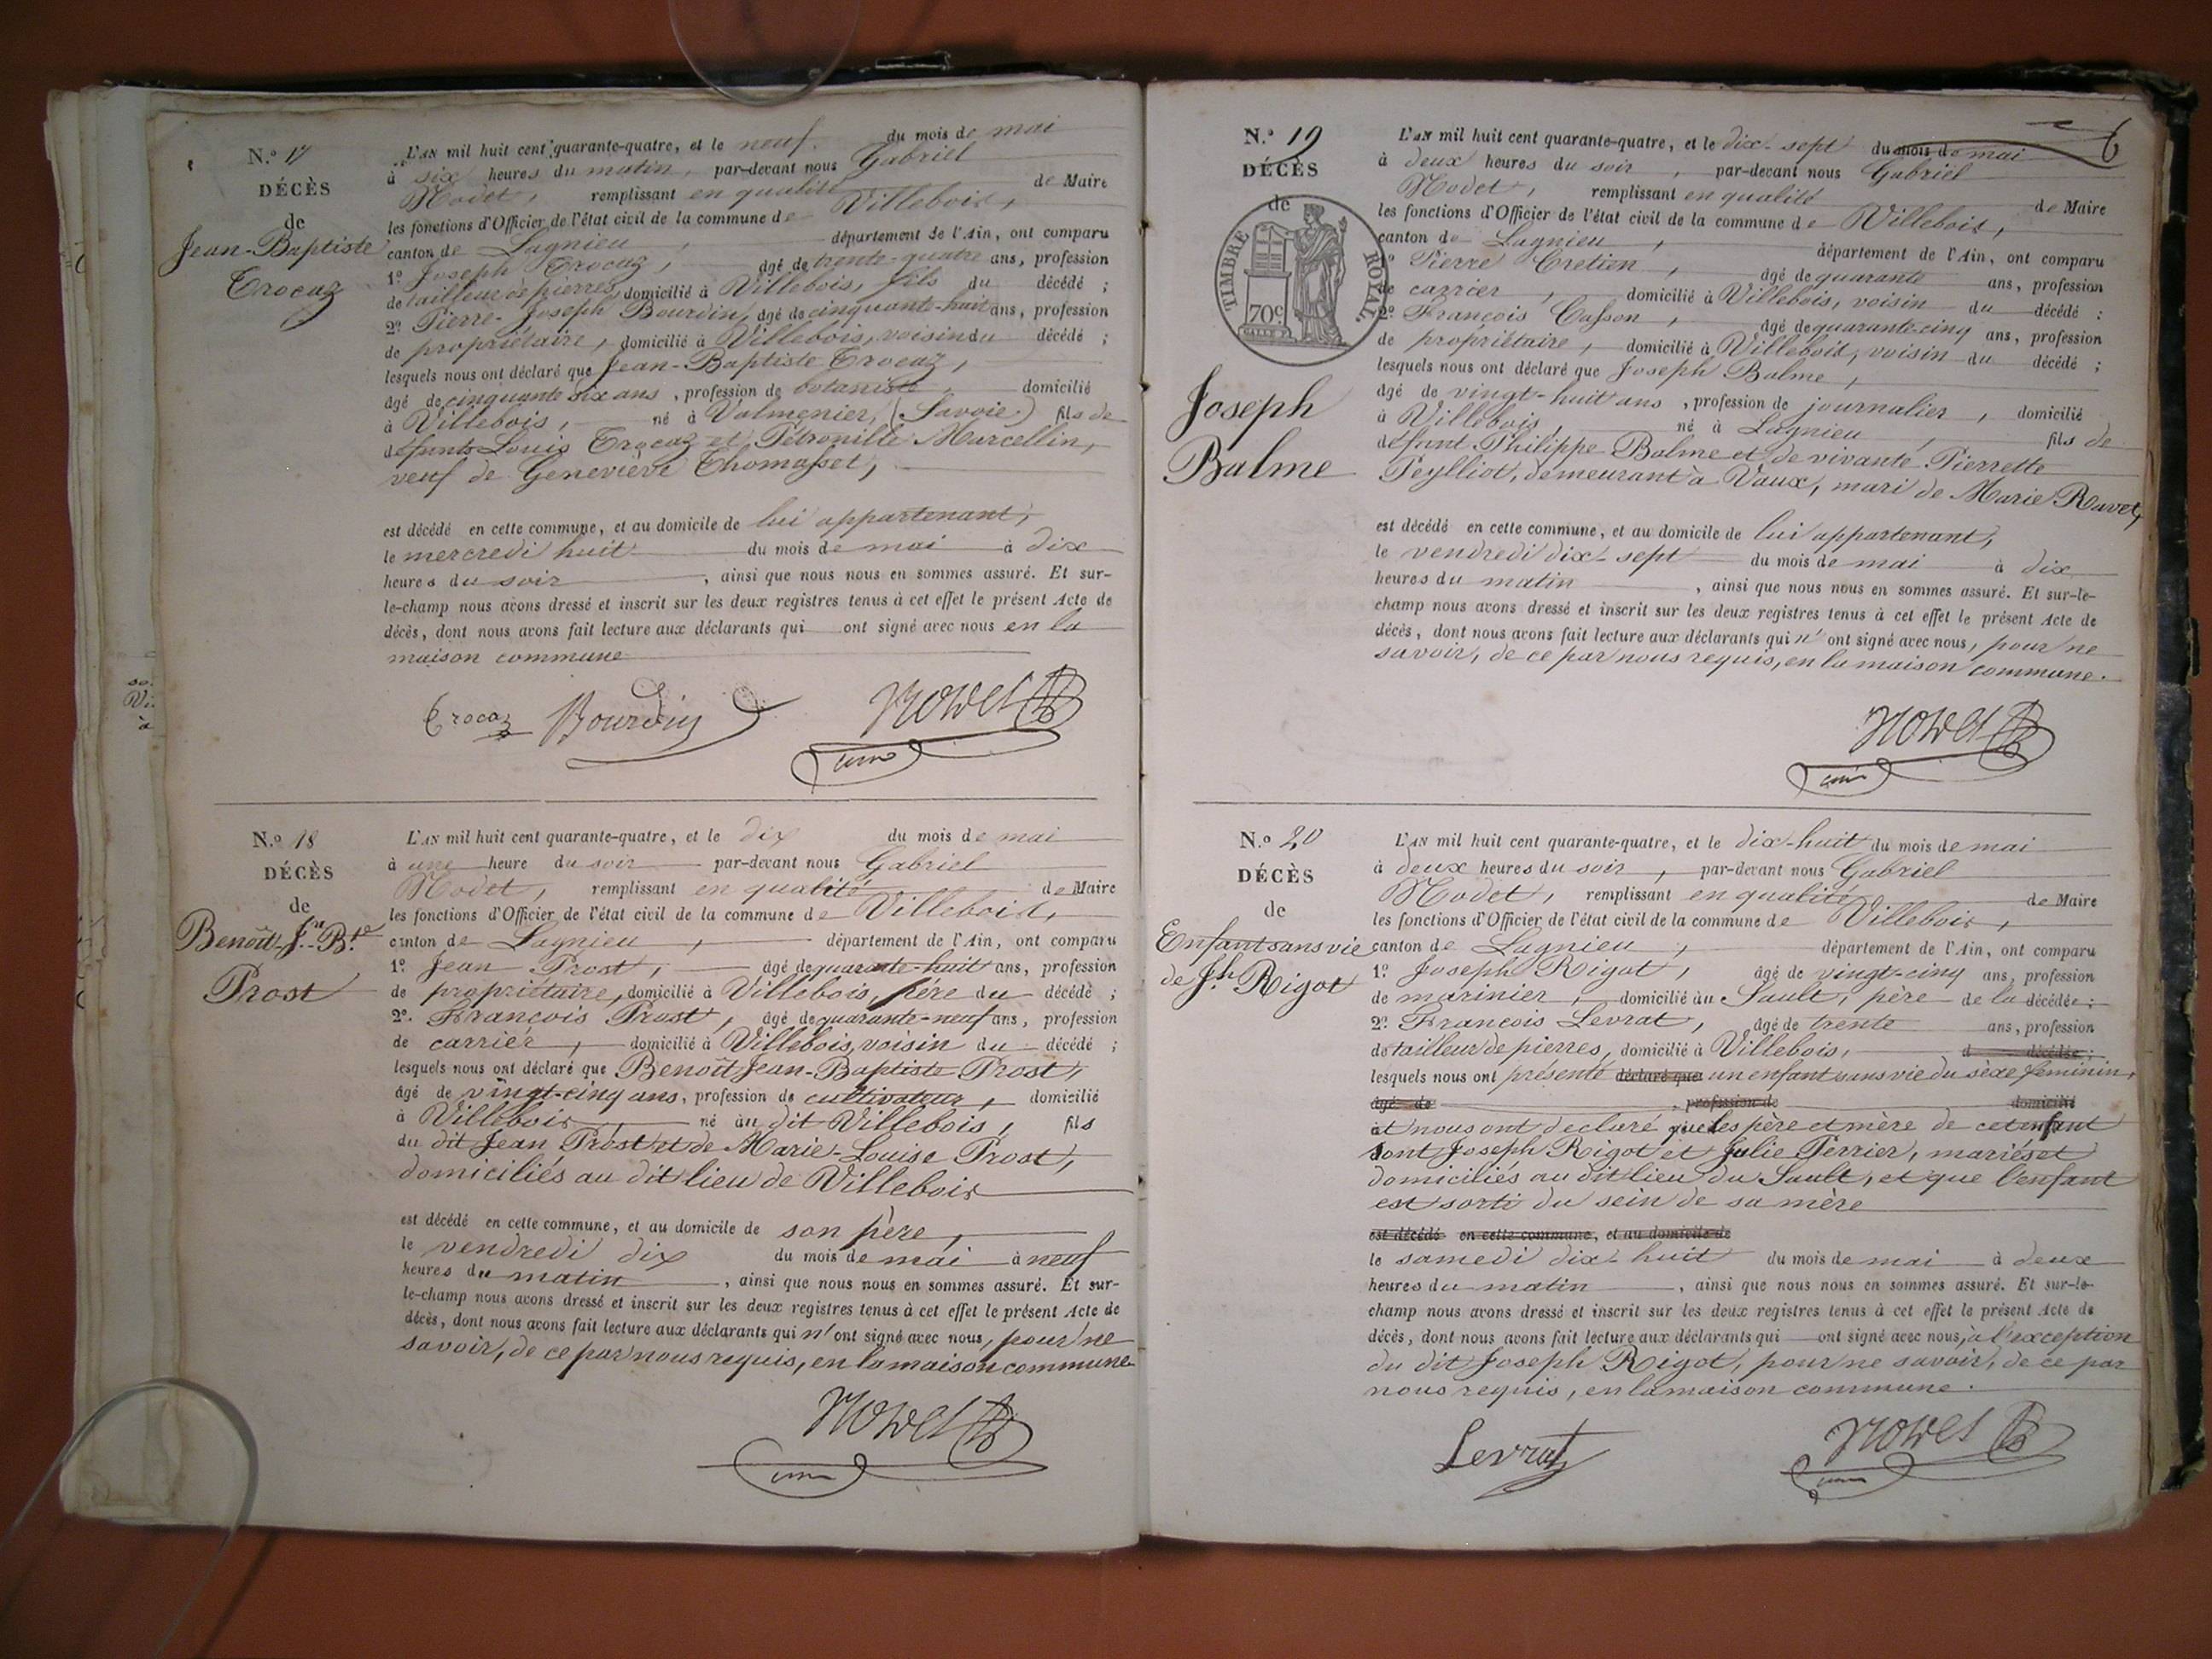 N.o 17
DÉCÈS
de
Jean-Baptiste
Trocaz
L'AN mil huit cent quarante-quatre, et le neuf du mois de mai
à six heures du matin, par-devant nous Gabriel
Modet, remplissant en qualité de Maire
les fonctions d'Officier de l'état civil de la commune de Villebois,
canton de Lagnieu, département de l'Ain, ont comparu
1o Joseph Trocaz, âgé de trente-quatre ans, profession
de tailleur de pierres, domicilié à Villebois, fils du décédé;
2o Pierre-Joseph Bourdin, âgé de cinquante-huit ans, profession
de propriétaire, domicilié à Villebois, voisin du décédé;
lesquels nous ont déclaré que Jean-Baptiste Trocaz,
âgé de cinquante six ans, profession de botaniste, domicilié
à Villebois, né à Valmenier, (Savoie) fils de
défunts Louis Trocaz et Pétronille Marcellin,
veuf de Geneviève Thomasset,
est décédé en cette commune, et au domicile de lui appartenant,
le mercredi huit du mois de mai à dix
heures du soir, ainsi que nous nous en sommes assuré. Et sur-
le-champ nous avons dressé et inscrit sur les deux registres tenus à cet effet le présent Acte de
décès, dont nous avons fait lecture aux déclarants qui ont signé avec nous en la
maison commune
Trocaz Bourdin
N.o 18
DÉCÈS
de
Benoît-Jn-Bte
Prost
L'AN mil huit cent quarante-quatre, et le dix du mois de mai
à une heure du soir par-devant nous Gabriel
Modet, remplissant en qualité de Maire
les fonctions d'Officier de l'état civil de la commune de Villebois,
canton de Lagnieu, département de l'Ain, ont comparu
1o Jean Prost, âgé de quarante-huit ans, profession
de propriétaire, domicilié à Villebois, père du décédé;
2o François Prost, âgé de quarante-neuf ans, profession
de carrier, domicilié à Villebois, voisin du décédé;
lesquels nous ont déclaré que Benoît Jean-Baptiste Prost,
âgé de vingt-cinq ans, profession de cultivateur, domicilié
à Villebois né au dit Villebois, fils
du dit Jean Prost et de Marie-Louise Prost,
domiciliés au dit lieu de Villebois
est décédé en cette commune, et au domicile de son père,
le vendredi dix du mois de mai à neuf
heures du matin, ainsi que nous nous en sommes assuré. Et sur-
le-champ nous avons dressé et inscrit sur les deux registres tenus à cet effet le présent Acte de
décès, dont nous avons fait lecture aux déclarants qui n'ont signé avec nous, pour ne
savoir, de ce par nous requis, en la maison commune
N.o 19
DÉCÈS
de
TIMBRE ROYAL
70c
Joseph
Balme
6
L'AN mil huit cent quarante-quatre, et le dix-sept du mois de mai
à deux heures du soir, par-devant nous Gabriel
Modet, remplissant en qualité de Maire
les fonctions d'Officier de l'état civil de la commune de Villebois,
canton de Lagnieu, département de l'Ain, ont comparu
1o Pierre Cretien, âgé de quarante ans, profession
de carrier, domicilié à Villebois, voisin du décédé;
2o François Casson, âgé de quarante-cinq ans, profession
de propriétaire, domicilié à Villebois, voisin du décédé;
lesquels nous ont déclaré que Joseph Balme,
âgé de vingt-huit ans, profession de journalier, domicilié
à Villebois, né à Lagnieu, fils de
défunt Philippe Balme et de vivante Pierrette
Peylliot, demeurant à Vaux, mari de Marie Ravet,
est décédé en cette commune, et au domicile de lui appartenant,
le vendredi dix-sept du mois de mai à dix
heures du matin, ainsi que nous nous en sommes assuré. Et sur-le-
champ nous avons dressé et inscrit sur les deux registres tenus à cet effet le présent Acte de
décès, dont nous avons fait lecture aux déclarants qui n'ont signé avec nous, pour ne
savoir, de ce par nous requis, en la maison commune.
N.o 20
DÉCÈS
de
Enfant sans vie
de Jh Rigot
L'AN mil huit cent quarante-quatre, et le dix-huit du mois de mai
à deux heures du soir, par-devant nous Gabriel
Modet, remplissant en qualité de Maire
les fonctions d'Officier de l'état civil de la commune de Villebois,
canton de Lagnieu, département de l'Ain, ont comparu
1o Joseph Rigot, âgé de vingt-cinq ans, profession
de marinier, domicilié au Sault, père de la décédée;
2o François Levrat, âgé de trente ans, profession
de tailleur de pierres, domicilié à Villebois, d décédée;
lesquels nous ont présenté déclaré que un enfant sans vie du sexe féminin,
âgé de , profession de domicilié
et nous ont declaré que les père et mère de cet enfant
sont Joseph Rigot et Julie Perrier, mariés et
domiciliés au dit lieu du Sault, et que l'enfant
est sorti du sein de sa mère
est décédé en cette commune, et au domicile de
le samedi dix-huit du mois de mai à deux
heures du matin, ainsi que nous nous en sommes assuré. Et sur-le-
champ nous avons dressé et inscrit sur les deux registres tenus à cet effet le présent Acte de
décès, dont nous avons fait lecture aux déclarants qui ont signé avec nous, à l'exception
du dit Joseph Rigot, pour ne savoir, de ce par
nous requis, en la maison commune.
Levrat